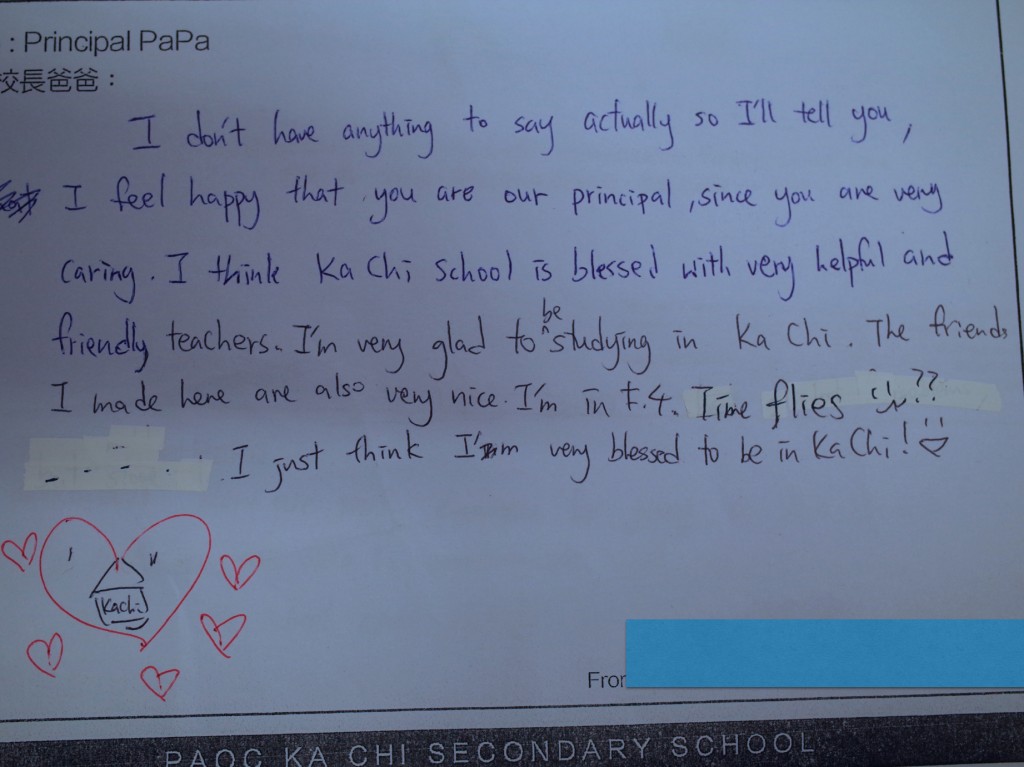 : Principal PaPa
校長爸爸：
I don't have anything to say actually so I'll tell you,
I feel happy that you are our principal, since you are very
caring. I think Ka Chi school is blessed with very helpful and
friendly teachers. I'm very glad to be studying in Ka Chi. The friends
I made here are also very nice. I'm in F.4. Time flies ??
I just think I'm very blessed to be in Ka Chi!
Kachi
From
PAOC KA CHI SECONDARY SCHOOL